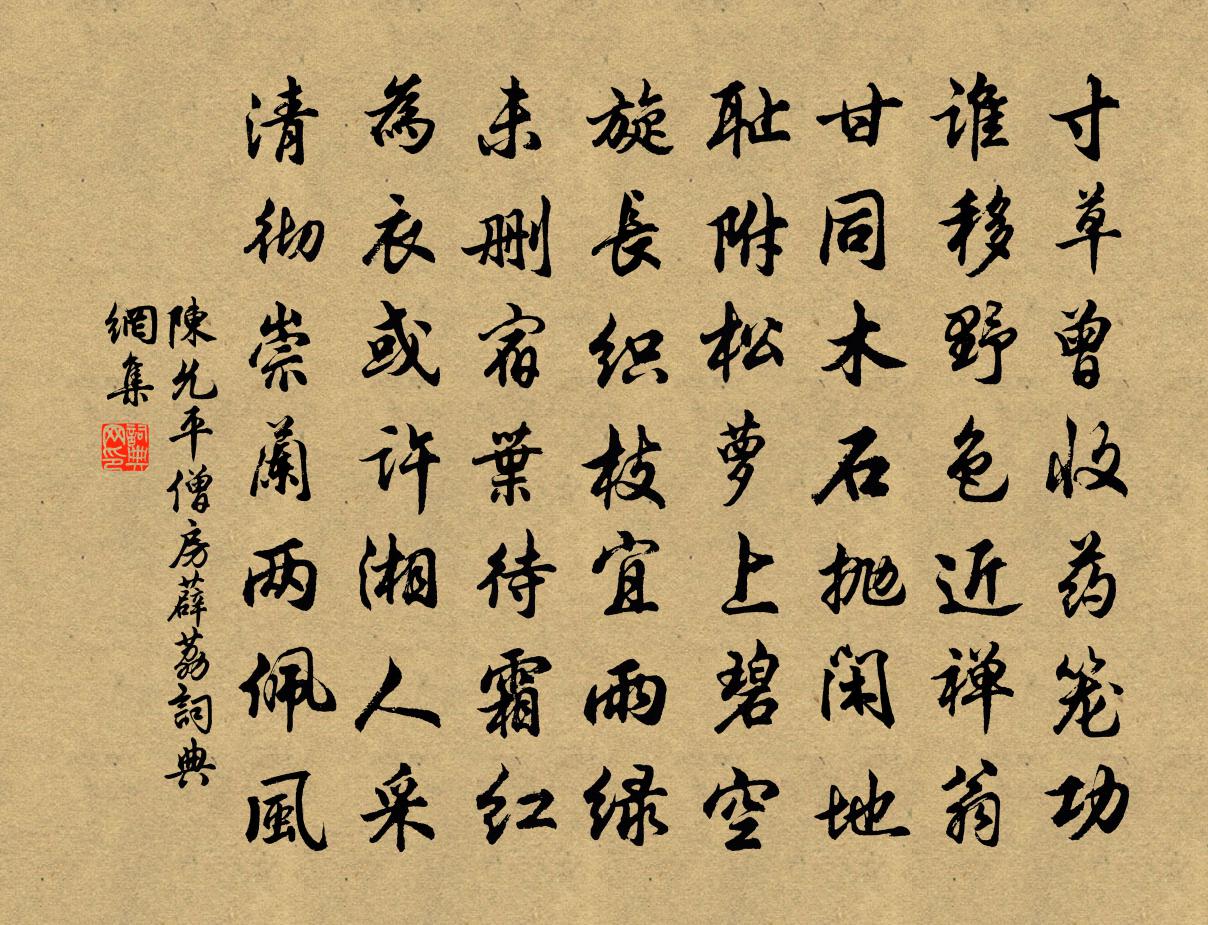 寸草曾收药笼功
谁移野色近禅翁
甘同木石抛闲地
耻附松萝上碧空
旋長织枝宜雨绿
未删宿葉待霜红
為衣或许湘人采
清彻崇蘭两佩風
陳允平僧房薜荔詞典
網集
詞典网印